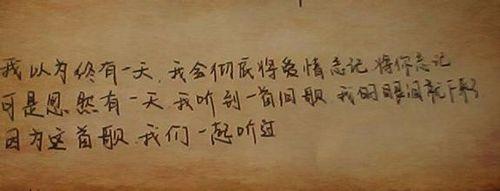 我以为终有一天,我会彻底将爱情忘记 将你忘记
可是忽然有一天 我听到一首旧歌 我的眼泪就下来了
因为这首歌 我们一起听过